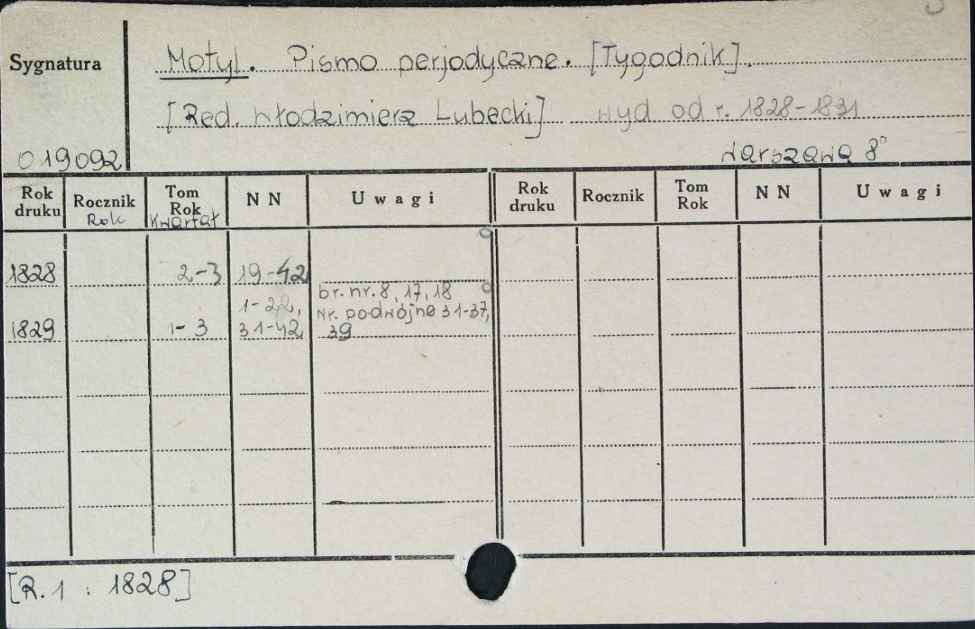 Sygnatura
Motyl. Pismo perjodyczne. [Tygodnik].
[Red. Włodzimierz Lubecki] wyd od r. 1828-1831
019092
Warszawa 8°
Rok druku Rocznik Rok Tom Rok Kwartał NN Uwagi Rok druku Rocznik Tom Rok NN Uwagi
1828 2-3 19-42
1-22, br. nr. 8, 17, 18
Nr. podwójne 31-37,
1829 1-3 31-42 39
[R. 1 : 1828]